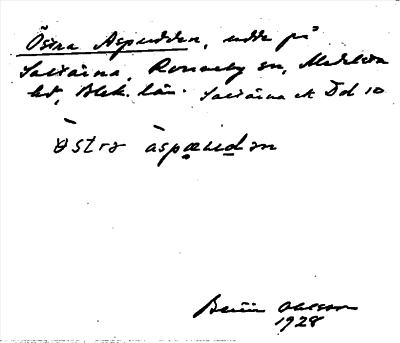 Östra Aspudden, udde på
Saltärna, Ronneby sn, Medelsta
hd, Blek. län. Saltärna ek Dd 10
östrə àspœudən
Olsson
1928